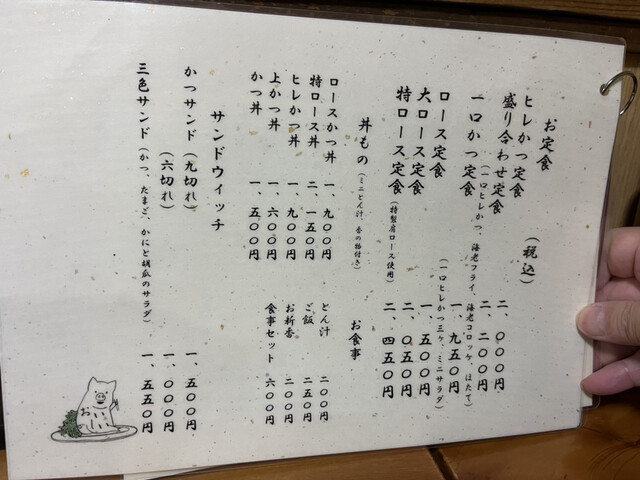 お定食 (税込)
ヒレかつ定食 二、〇〇〇円
盛り合わせ定食 二、二〇〇円
(一口ヒレかつ、海老フライ、海老コロッケ、ほたて)
一口かつ定食 一、九五〇円
(一口ヒレかつ三ケ、ミニサラダ)
ロース定食 一、五〇〇円
大ロース定食 二、〇五〇円
特ロース定食(特製肩ロース使用) 二、四五〇円
丼もの(ミニとん汁、香の物付き)
ロースかつ丼 一、九〇〇円
特ロース丼 二、一五〇円
ヒレかつ丼 一、九〇〇円
上かつ丼 一、六〇〇円
かつ丼 一、五〇〇円
お食事
とん汁 二〇〇円
ご飯 二五〇円
お新香 二〇〇円
食事セット 六〇〇円
サンドウィッチ
かつサンド(九切れ) 一、五〇〇円
(六切れ) 一、〇〇〇円
三色サンド(かつ、たまご、かにと胡瓜のサラダ) 一、五五〇円